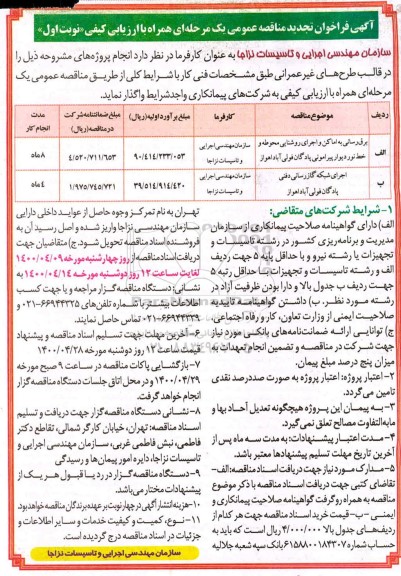 آگهی فراخوان تجدید مناقصه عمومی یک مرحله‌ای همراه با ارزیابی کیفی «نوبت اول»
سازمان مهندسی اجرایی و تاسیسات نزاجا به عنوان کارفرما در نظر دارد انجام پروژه‌های مشروحه ذیل را
در قالب طرح‌های غیرعمرانی طبق مشخصات فنی کار با شرایط کلی از طریق مناقصه عمومی یک
مرحله‌ای همراه با ارزیابی کیفی به شرکت‌های پیمانکاری واجد شرایط واگذار نماید.
ردیف موضوع مناقصه کارفرما مبلغ برآورد اولیه (ریال) مبلغ ضمانتنامه شرکت در مناقصه (ریال) مدت انجام کار
الف برق‌رسانی به اماکن و اجرای روشنایی محوطه و خط نور دیوار پیرامونی پادگان فولی آباد اهواز سازمان مهندسی اجرایی و تاسیسات نزاجا ۹۰/۴۱۴/۲۳۳/۰۵۳ ۴/۵۲۰/۷۱۱/۶۵۳ ۸ ماه
ب اجرای شبکه گازرسانی دفنی پادگان فولی آباد اهواز سازمان مهندسی اجرایی و تاسیسات نزاجا ۳۹/۵۱۴/۹۱۴/۴۲۰ ۱/۹۷۵/۷۴۵/۷۲۱ ۴ ماه
۱- شرایط شرکت‌های متقاضی:
الف) دارای گواهینامه صلاحیت پیمانکاری از سازمان
مدیریت و برنامه‌ریزی کشور در رشته تاسیسات و
تجهیزات یا رشته نیرو و با حداقل پایه ۵ جهت ردیف
الف و رشته تاسیسات و تجهیزات با حداقل رتبه ۵
جهت ردیف ب جدول بالا و دارا بودن ظرفیت آزاد در
رشته مورد نظر. ب) داشتن گواهینامه تاییدیه
صلاحیت ایمنی از وزارت تعاون، کار و رفاه اجتماعی.
ج) توانایی ارائه ضمانت‌نامه‌های بانکی مورد نیاز
جهت شرکت در مناقصه و تضمین انجام تعهدات به
میزان پنج درصد مبلغ پیمان.
۲- اعتبار پروژه: اعتبار پروژه به صورت صددرصد نقدی
تامین می‌گردد.
۳- به پیمان این پروژه هیچگونه تعدیل آحاد بها و
مابه‌التفاوت مصالح تعلق نمی‌گیرد.
۴- مدت اعتبار پیشنهادات: به مدت سه ماه پس از
آخرین تاریخ مهلت تسلیم پیشنهادها معتبر باشد.
۵- مدارک مورد نیاز جهت دریافت اسناد مناقصه: الف-
تقاضای کتبی جهت دریافت اسناد مناقصه با ذکر موضوع
مناقصه به همراه رو گرفت گواهینامه صلاحیت پیمانکاری و
ایمنی - ب- قیمت خرید اسناد مناقصه جهت هر کدام از
ردیف‌های جدول بالا ۴/۰۰۰/۰۰۰ ریال است که باید به
حساب شماره ۶۱۵۸۸۰۰۱۸۴۳۰۷ بانک سپه شعبه جلالیه
تهران به نام تمرکز وجوه حاصل از عواید داخلی دارایی
سازمان مهندسی نزاجا واریز شده و اصل رسید آن به
فروشنده اسناد مناقصه تحویل شود. ج) متقاضیان جهت
دریافت اسناد مناقصه از روز چهارشنبه مورخه ۱۴۰۰/۰۴/۰۹
لغایت ساعت ۱۲ روز دوشنبه مورخه ۱۴۰۰/۰۴/۱۴ به
نشانی: دستگاه مناقصه گزار مراجعه و یا جهت کسب
اطلاعات بیشتر با شماره تلفن‌های ۶۶۹۴۴۳۲۵-۰۲۱
۶۶۹۴۴۳۳۹-۰۲۱ تماس حاصل نمایند.
۶- آخرین مهلت جهت تسلیم اسناد مناقصه و پیشنهاد
قیمت ساعت ۱۲ روز دوشنبه مورخه ۱۴۰۰/۰۴/۲۸
۷- بازگشایی پاکات مناقصه در ساعت ۹ صبح مورخه
۱۴۰۰/۰۴/۲۹ و در محل اتاق جلسات دستگاه مناقصه گزار
انجام خواهد گرفت.
۸- نشانی دستگاه مناقصه گزار جهت دریافت و تسلیم
اسناد مناقصه: تهران، خیابان کارگر شمالی، تقاطع دکتر
فاطمی، نبش فاطمی غربی، سازمان مهندسی اجرایی و
تاسیسات نزاجا، دایره امور پیمان‌ها و رسیدگی
۹- دستگاه مناقصه گزار در رد یا قبول هر یک از
پیشنهادات مختار می‌باشد.
۱۰- هزینه انتشار آگهی در چهار نوبت بر عهده برندگان مناقصه خواهد بود.
۱۱- نوع، کمیت و کیفیت خدمات و سایر اطلاعات و
جزئیات در اسناد مناقصه درج گردیده است.
سازمان مهندسی اجرایی و تاسیسات نزاجا